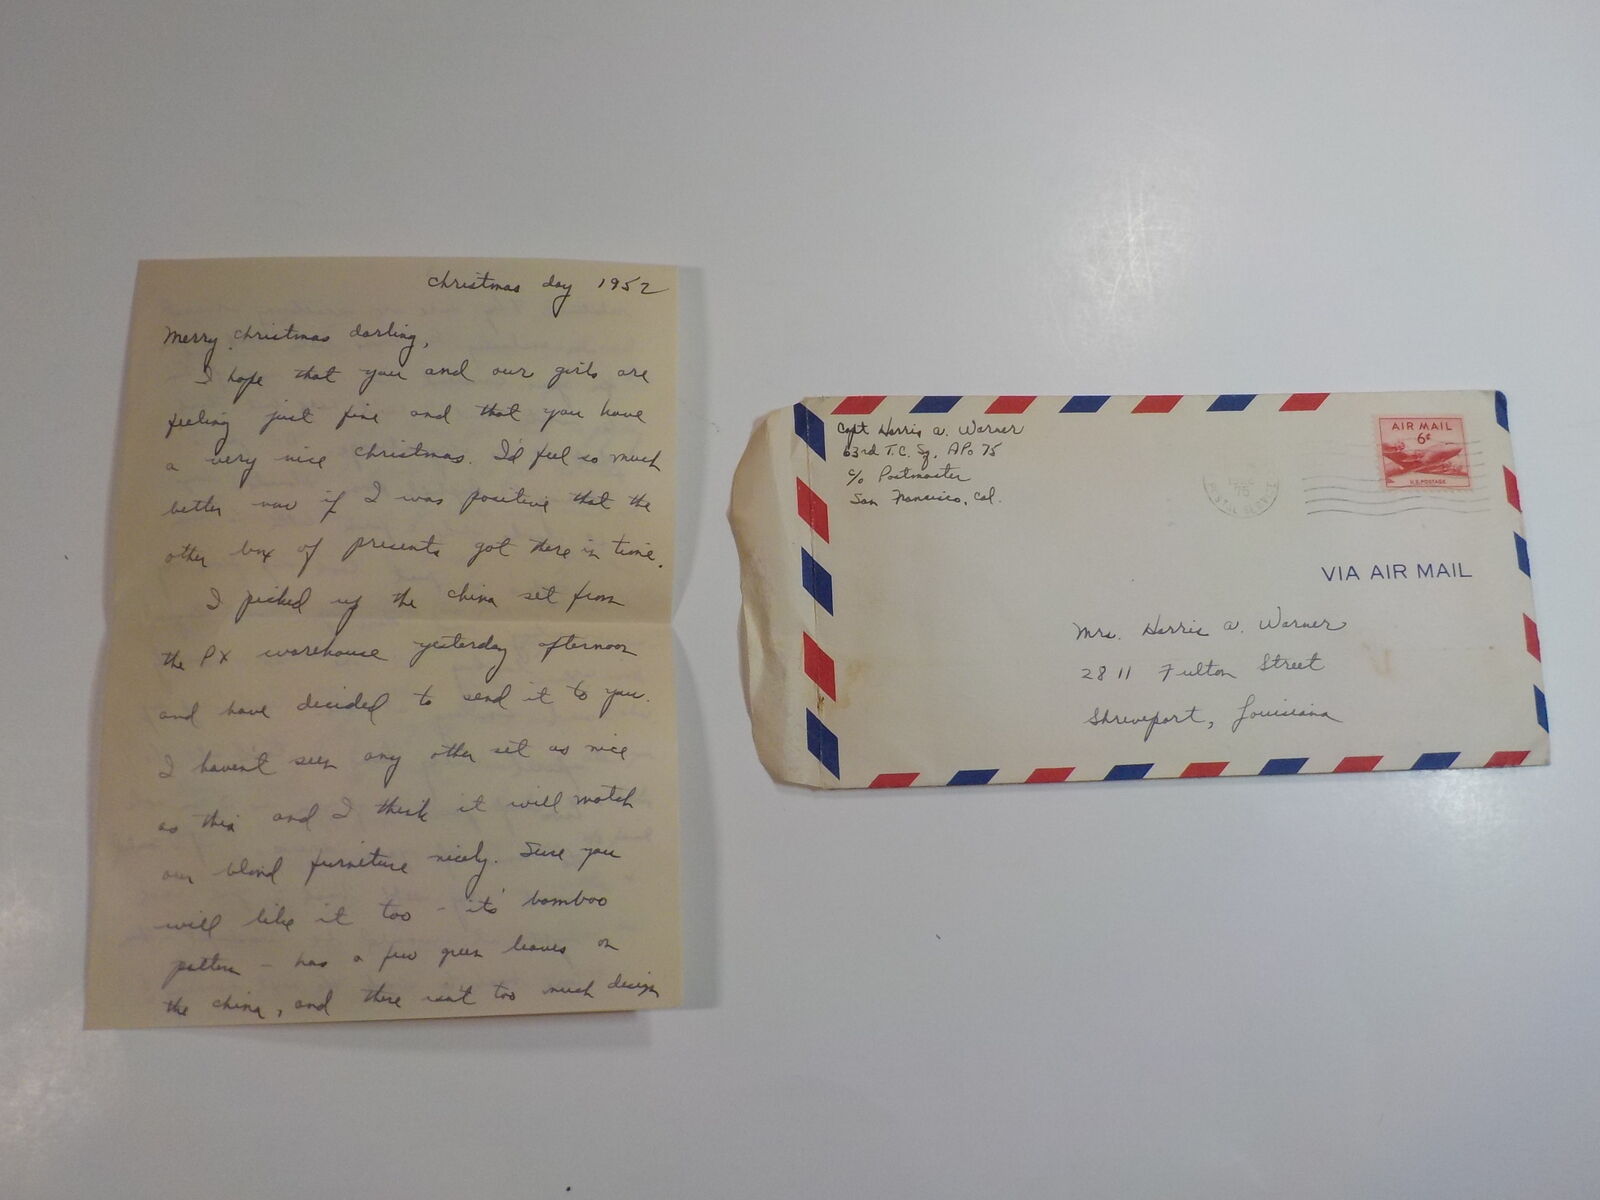 Christmas day 1952
Merry Christmas darling,
I hope that you and our girls are
feeling just fine and that you have
a very nice Christmas. I'd feel so much
better now if I was positive that the
other box of presents got there in time.
I picked up the china set from
the PX warehouse yesterday afternoon
and have decided to send it to you.
I haven't seen any other set as nice
as this and I think it will match
our blond furniture nicely. Sure you
will like it too - it's bamboo
pattern - has a few green leaves on
the china, and there isn't too much design
Capt Harris A. Warner
63rd T.C. Sq, APO 75
c/o Postmaster
San Francisco, Cal.
AIR MAIL
6¢
U.S. POSTAGE
75
POSTAL SERVICE
VIA AIR MAIL
Mrs. Harris A. Warner
2811 Fulton Street
Shreveport, Louisiana